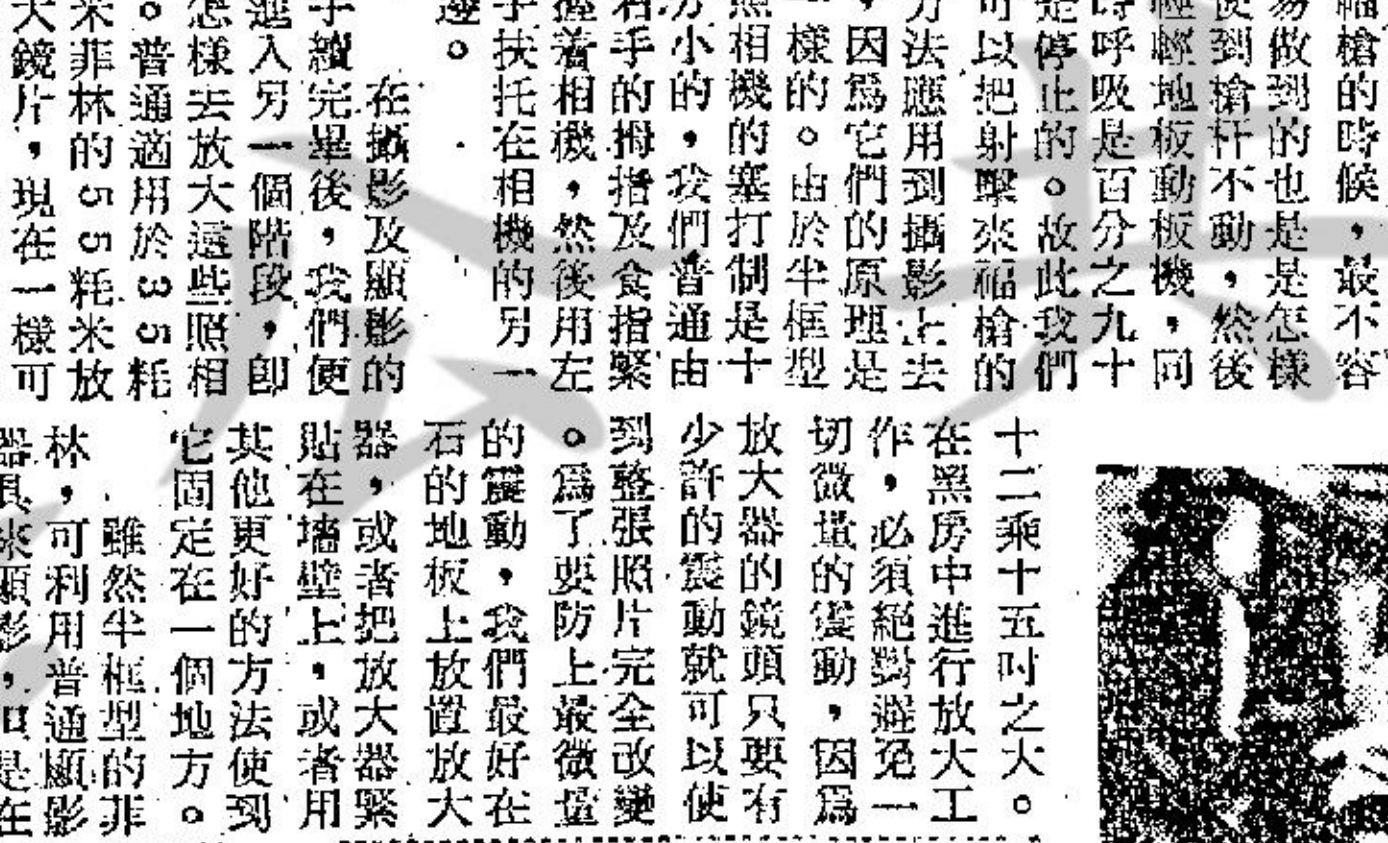 福槍的時候，最不容
易做到的也是是怎樣
使到槍杆不動，然後
輕輕地板動板機，同
時呼吸是百分之九十
是停止的。故此我們
可以把射擊來福槍的
方法應用到攝影上去
，因爲它們的原理是
一樣的。由於半框型
照相機的塞打制是十
分小的，我們普通由
右手的拇指及食指緊
握着相機，然後用左
手扶托在相機的另一
邊。
在攝影及顯影的
手續完畢後，我們便
進入另一個階段，卽
怎樣去放大這些照相
。普通適用於35粍
米菲林的55粍米放
大鏡片，現在一樣可
十二乘十五吋之大。
在黑房中進行放大工
作，必須絕對避免一
切微量的震動，因爲
放大器的鏡頭只要有
少許的震動就可以使
到整張照片完全改變
。爲了要防上最微量
的震動，我們最好在
石的地板上放置放大
器，或者把放大器緊
貼在墻壁上，或者用
其他更好的方法使到
它固定在一個地方。
雖然半框型的菲
林，可利用普通顯影
器具來顯影，但是在
公共